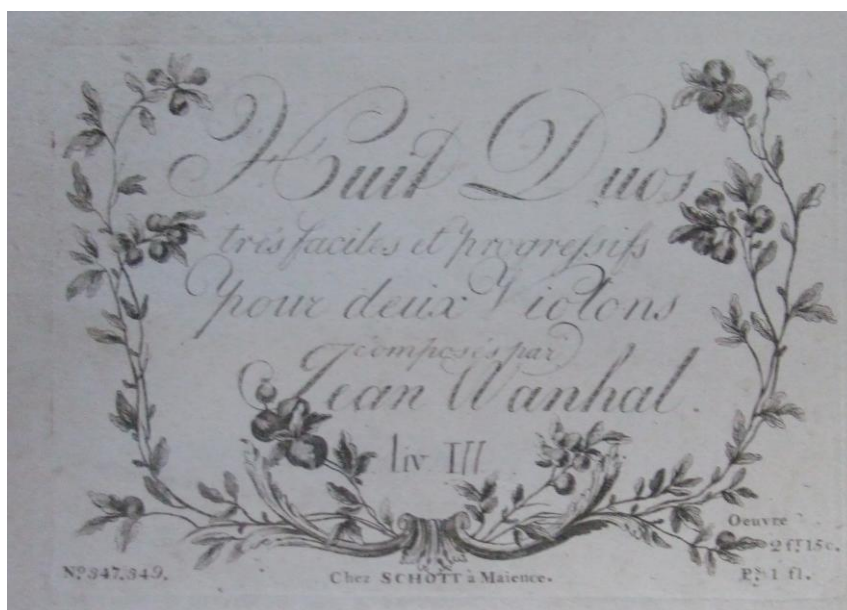 Huit Duos
très faciles et progressifs
pour deux Violons
composés par
Jean Wanhal.
liv. III
Oeuvre
2 fr. 15 c.
Nº 347. 349.
Chez SCHOTT à Maience.
Pr. 1 fl.